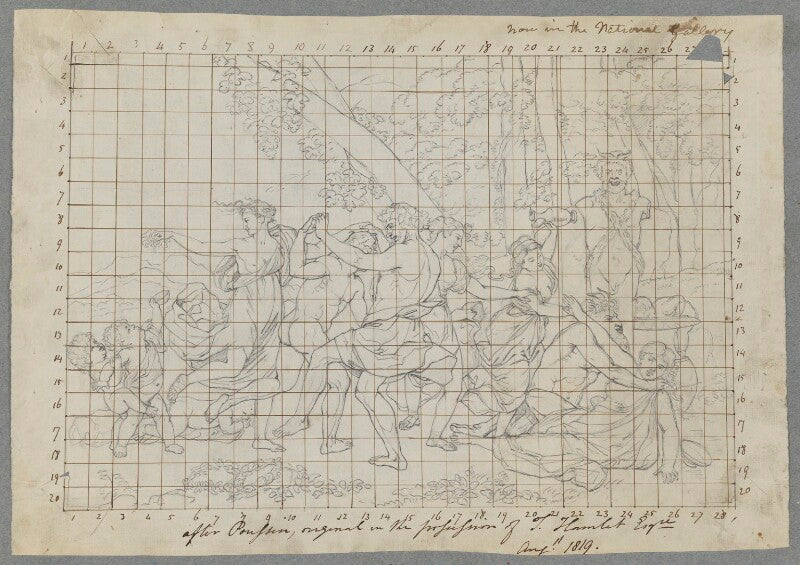 now in the National Gallery
1 2 3 4 5 6 7 8 9 10 11 12 13 14 15 16 17 18 19 20 21 22 23 24 25 26 27
1 1
2 2
3 3
4 4
5 5
6 6
7 7
8 8
9 9
10 10
11 11
12 12
13 13
14 14
15 15
16 16
17 17
18 18
19 19
20 20
1 2 3 4 5 6 7 8 9 10 11 12 13 14 15 16 17 18 19 20 21 22 23 24 25 26 27 28
after Poussin, original in the possession of T. Hamlet Esqre
Augt 1819.